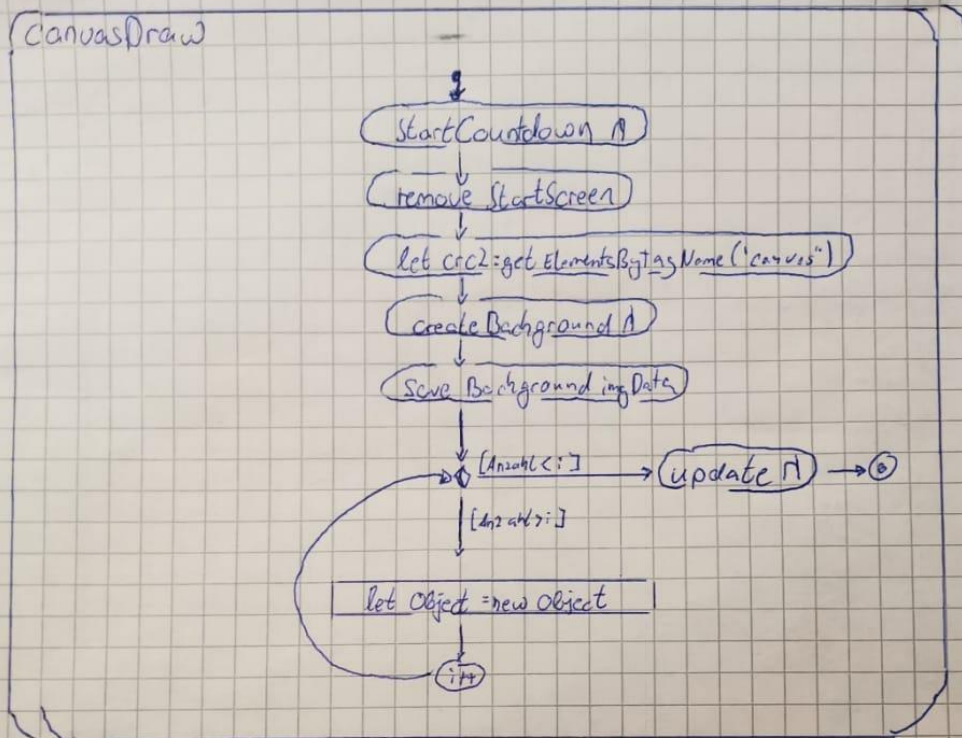 CanvasDraw
StartCountdown
remove StartScreen
let crc2=getElementsByTagName("canvas")
createBackground
save Background imgData
[Anzahl<i]
update
[Anzahl>i]
let Object = new Object
i++